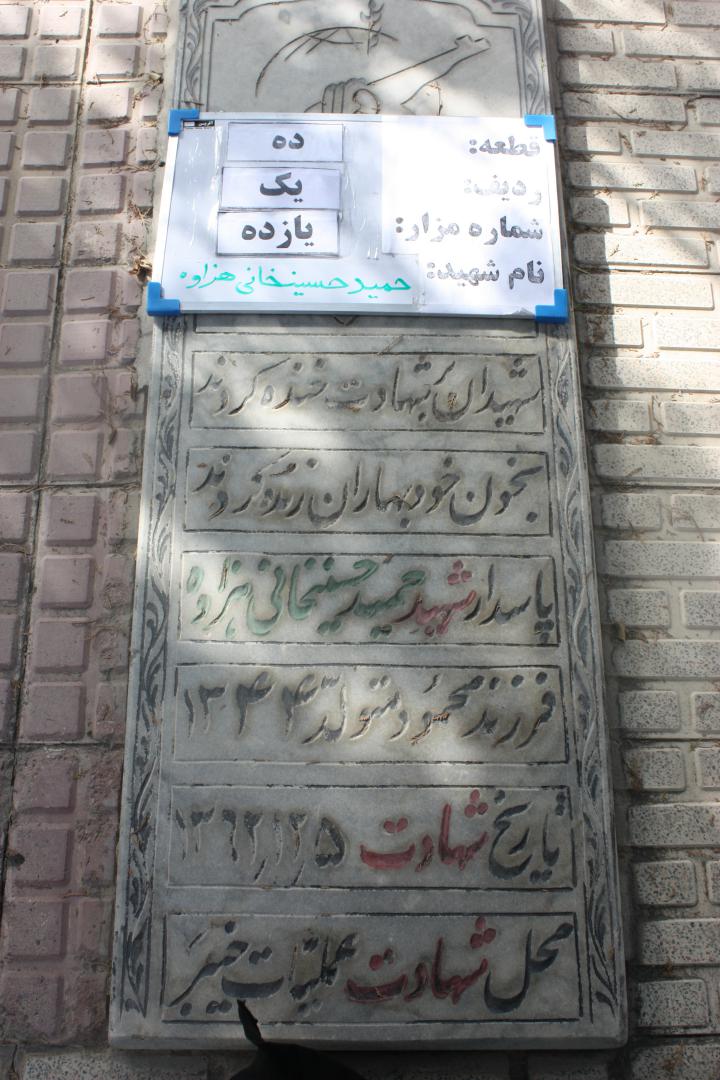 قطعه: ده
ردیف: یک
شماره مزار: یازده
نام شهید: حمید حسینخانی هزاوه
شهیدان بر شهادت خنده کردند
بخون خود بهاران زنده کردند
پاسدار شهید حمید حسینخانی هزاوه
فرزند محمود متولد ۱۳۴۴
تاریخ شهادت ۱۳۶۲/۱۲/۵
محل شهادت عملیات خیبر